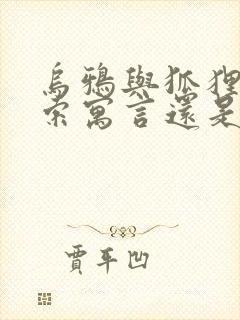 烏鴉與狐狸
索寓言還是
賈平凹